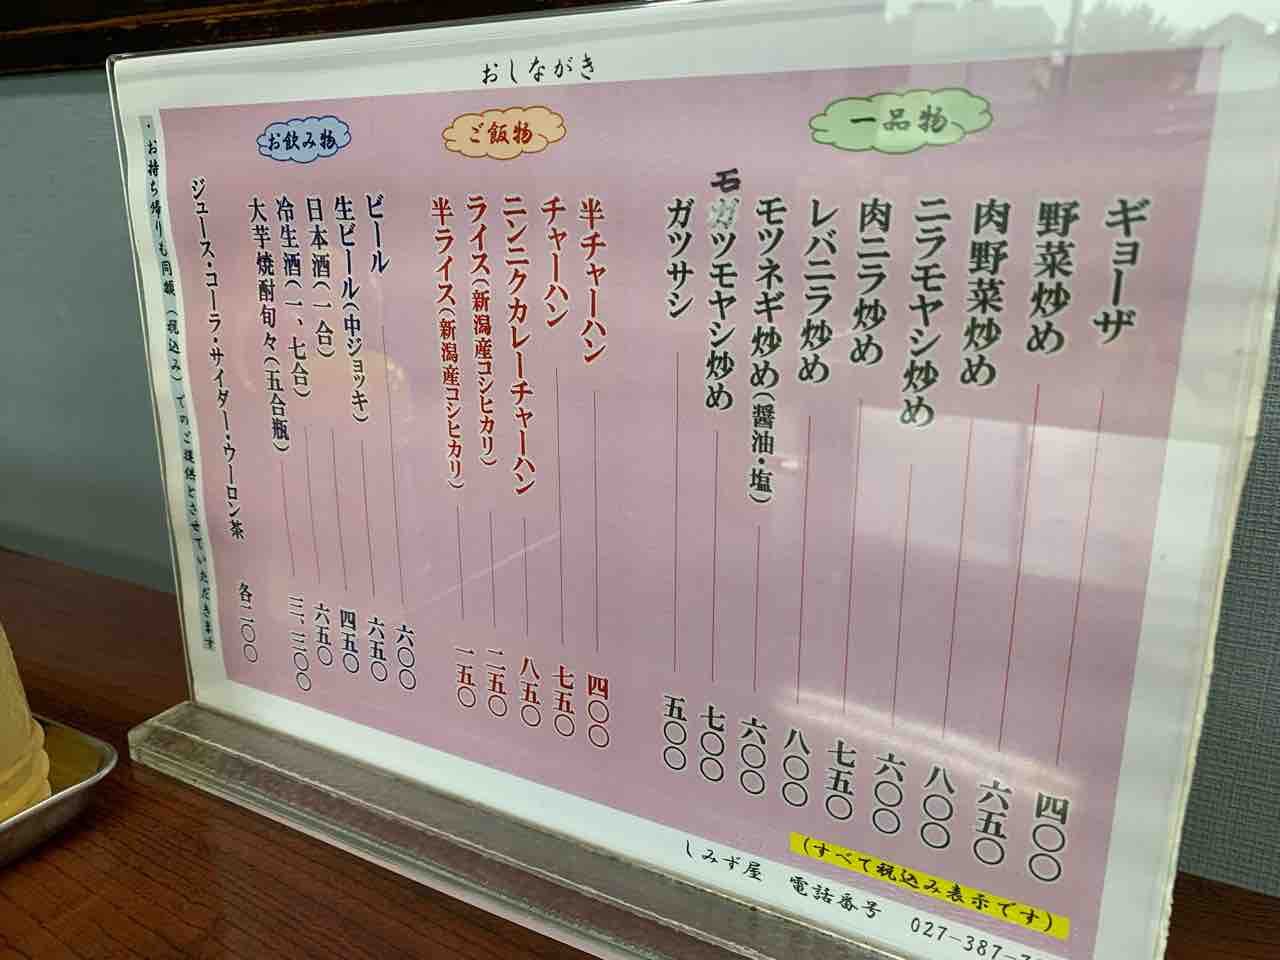 おしながき
一品物
ギョーザ 四〇〇
野菜炒め 六五〇
肉野菜炒め 八〇〇
ニラモヤシ炒め 六〇〇
肉ニラ炒め 七五〇
レバニラ炒め 八〇〇
モツネギ炒め(醤油・塩) 六〇〇
モツモヤシ炒め 七〇〇
ガツサシ 五〇〇
ご飯物
半チャーハン 四〇〇
チャーハン 七五〇
ニンニクカレーチャーハン 八五〇
ライス(新潟産コシヒカリ) 二五〇
半ライス(新潟産コシヒカリ) 一五〇
お飲み物
ビール 六〇〇
生ビール(中ジョッキ) 六五〇
日本酒(一合) 四五〇
冷生酒(一、七合) 六五〇
大芋焼酎旬々(五合瓶) 三、三〇〇
ジュース・コーラ・サイダー・ウーロン茶 各二〇〇
・お持ち帰りも同額(税込み)でのご提供とさせていただきます
(すべて税込み表示です)
しみず屋 電話番号 027-387-